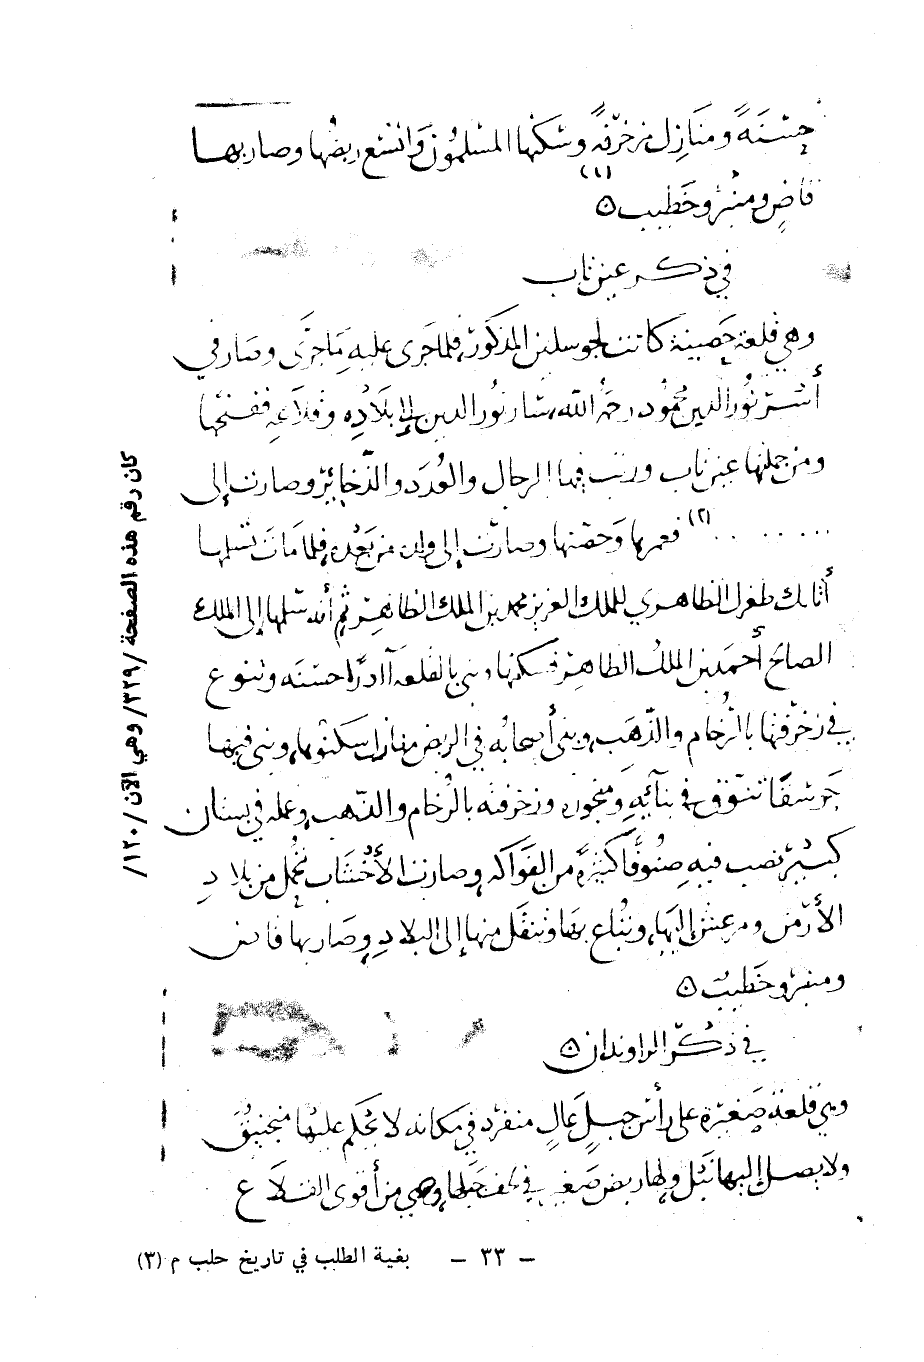 حسنةً ومنازل مزخرفةً وسكنها المسلمون واتسع ربضها وصار بها
(١)
قاضٍ ومنبرٌ وخطيب ٥
في ذكر عين تاب
وهي قلعة حصينة كانت لجوسلين المذكور، فلما جرى عليه ما جرى وصار في
أسر نور الدين محمود رحمه الله، سار نور الدين إلى بلاده وقلاعه ففتحها
ومن جملتها عين تاب ورتب فيها الرجال والعُدد والذخائر وصارت إلى
. . . . . . . (٢) فعمرها وحصنها وصارت إلى ولده من بعده، فلما مات تسلمها
أتابك طغرل الظاهري للملك العزيز محمد بن الملك الظاهر ثم أنه سلمها إلى الملك
الصالح أحمد بن الملك الظاهر فسكنها وبنى بالقلعة آدرًا حسنة وتنوع
في زخرفها بالرُّخام والذّهب، وبنى أصحابه في الربض منازل سكنوها، وبنى فيها
جوسقًا تنوّق في بنائه ومنجوره وزخرفه بالرُّخام والذّهب، وعمله في بستان
كبير نصب فيه صنوفًا كثيرة من الفواكه، وصارت الأخشاب تُحمل من بلاد
الأرمن ومرعش إليها، وتُباع بها وتنقل منها إلى البلاد، وصار بها قاض
ومنبر وخطيب ٥
في ذكر الراوندان ٥
وهي قلعة صغيرة على رأس جبل عالٍ منفرد في مكانه لا يحكم عليها منجنيق
ولا يصل إليها نبل ولها ربض صغير في لحف جبلها، وهي من أقوى القلاع
كان رقم هذه الصفحة /٣٢٩/ وهي الآن /١٢٠/
– ٣٣ – بغية الطلب في تاريخ حلب م (٣)